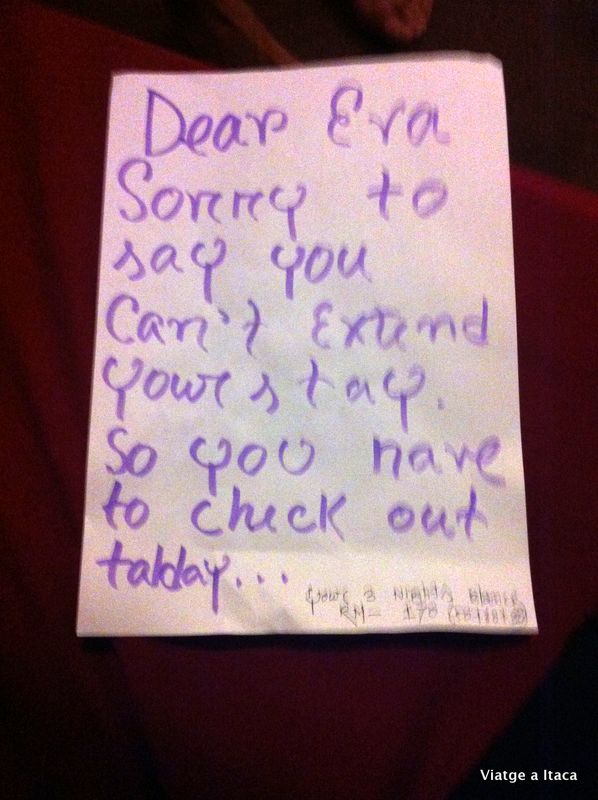 Dear Era
Sorry to
say you
Can't Extend
your stay.
So you have
to check out
today...
3 Nights
RM= 178
Viatge a Itaca